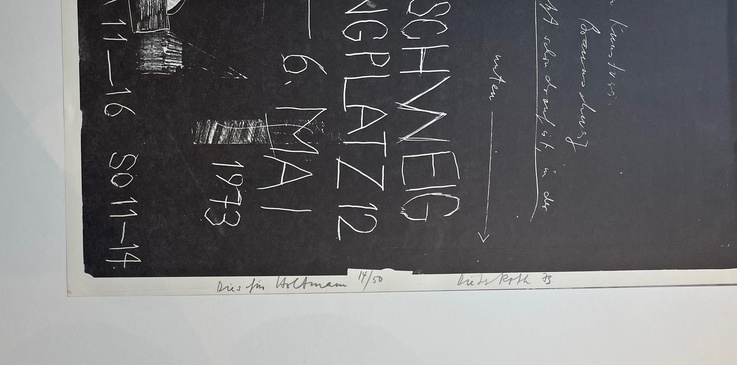 Kunstver.
Braunschweig
ist schon darauf ist, in der
unten
SCHWEIG
NGPLATZ 12
— 6. MAI
1973
11—16 SO 11—14
Dies für Holtmann 14/50 Dieter Roth 73